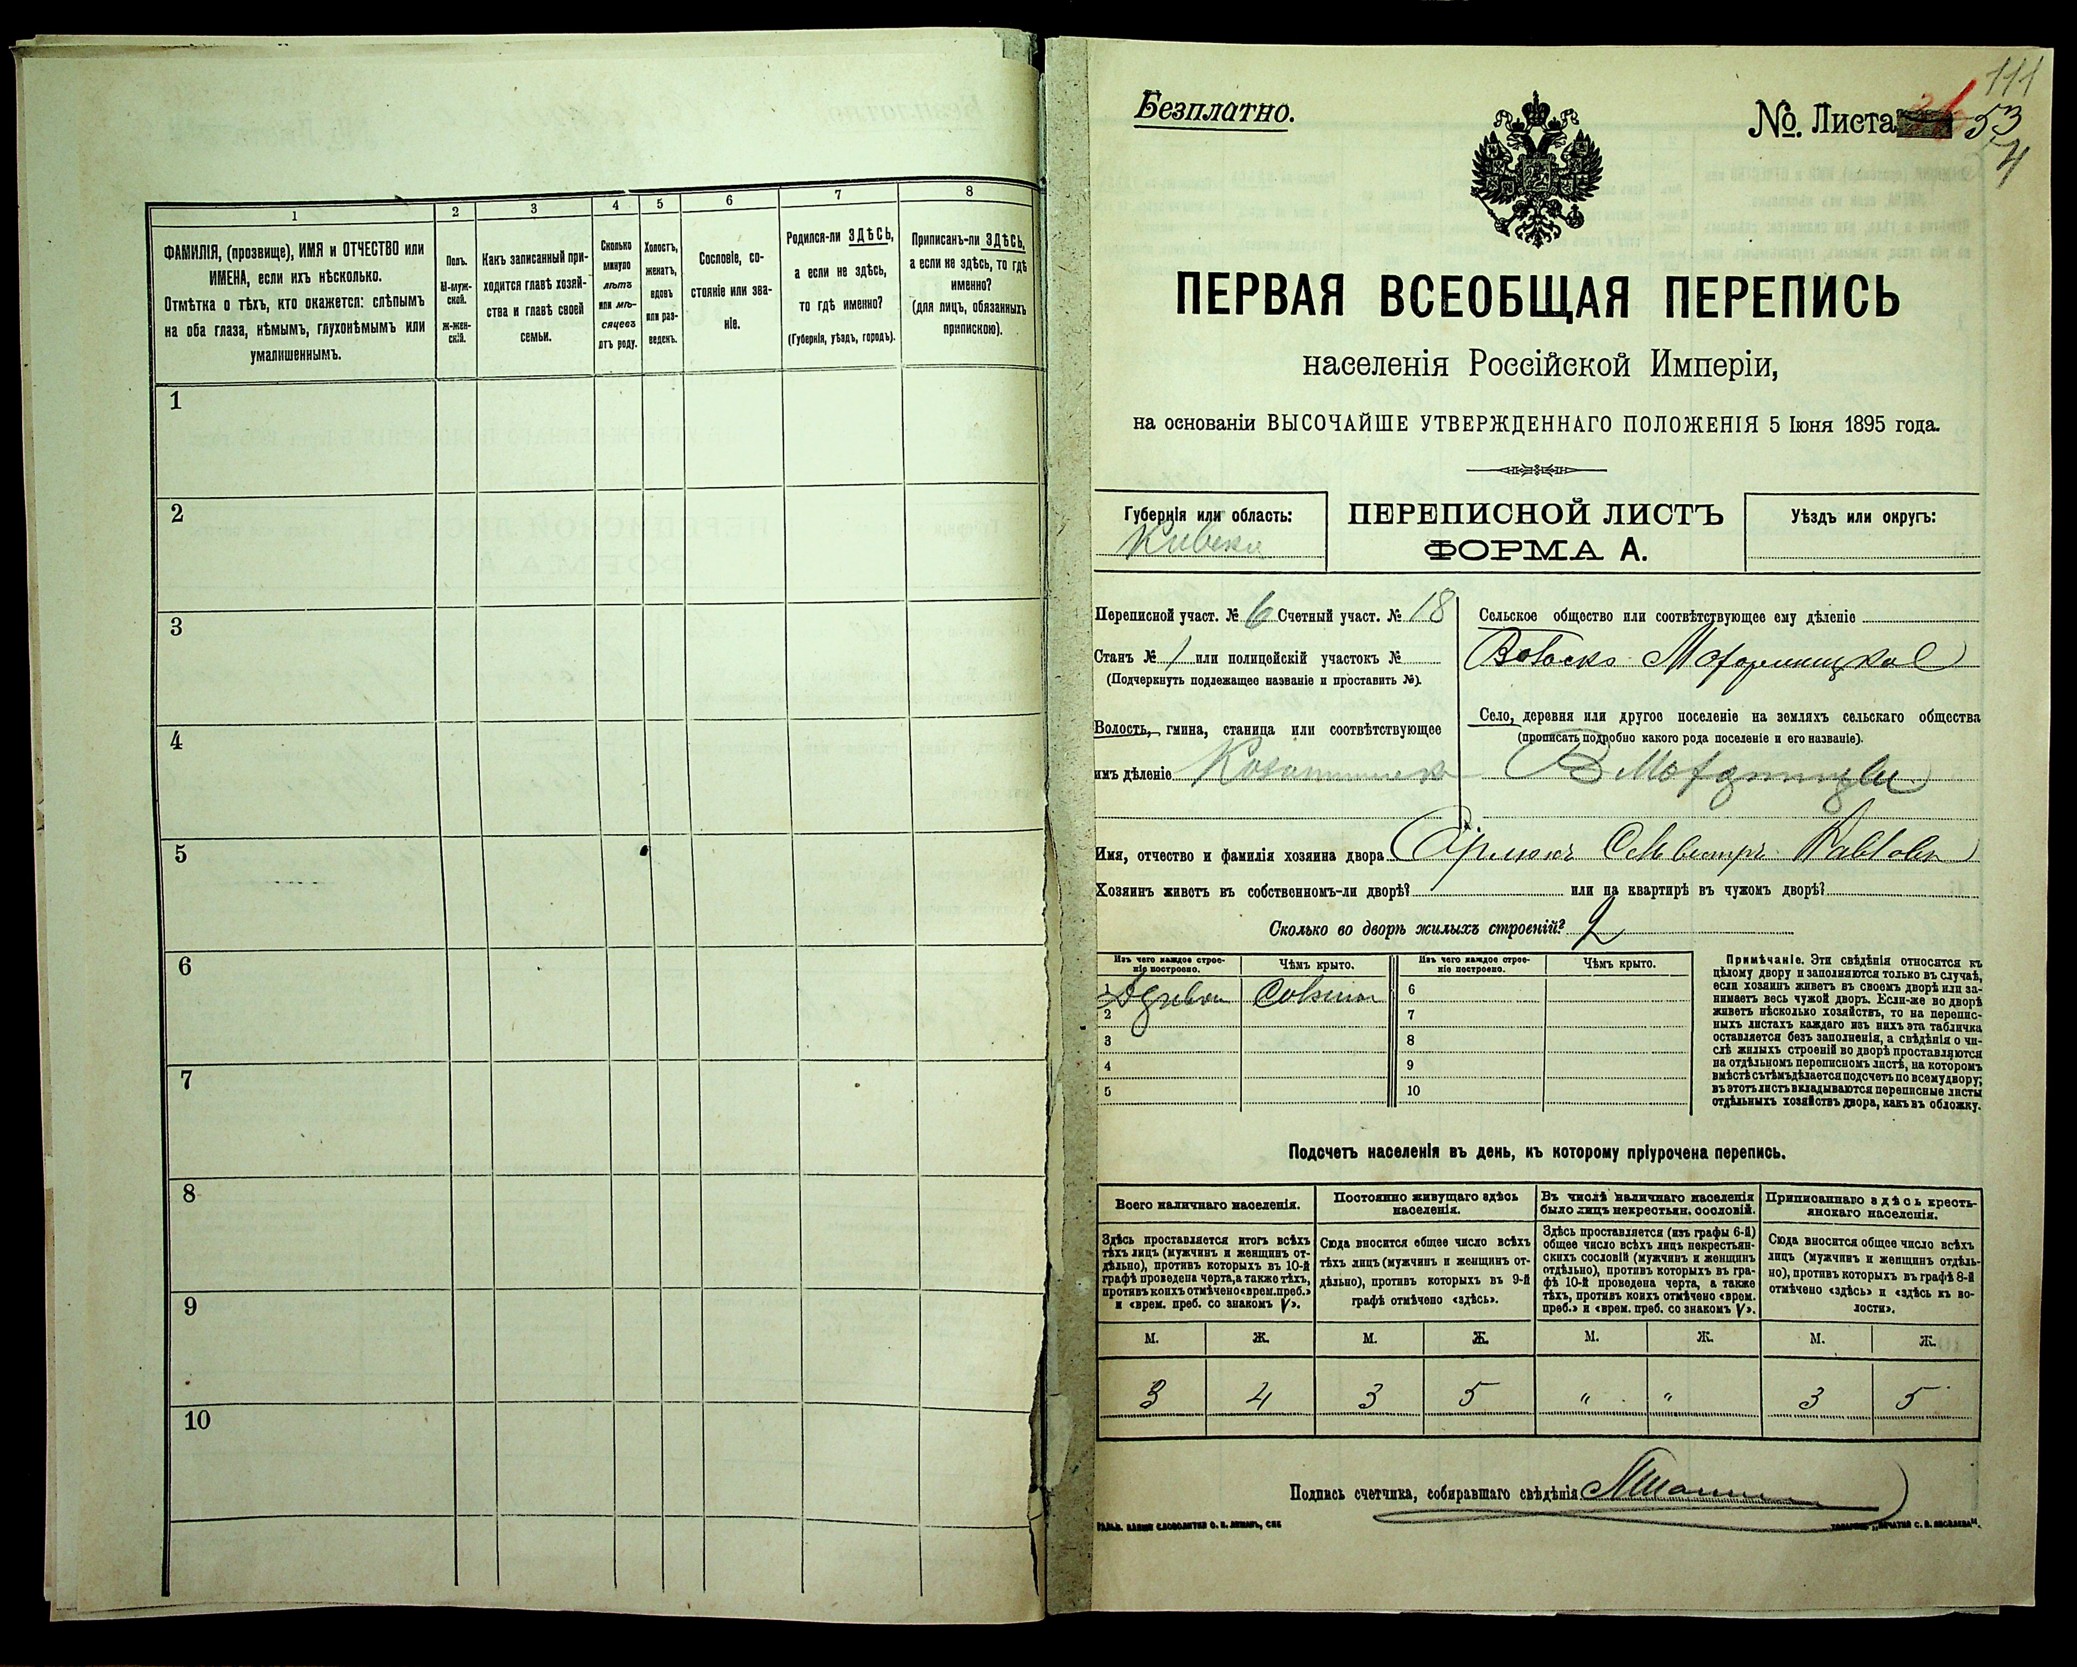 1
2
3
4
5
6
7
8
ФАМИЛІЯ, (прозвище), ИМЯ и ОТЧЕСТВО или
ИМЕНА, если ихъ нѣсколько.
Отмѣтка о тѣхъ, кто окажется: слѣпымъ
на оба глаза, нѣмымъ, глухонѣмымъ или
умалишеннымъ.
Полъ.
М-муж-
ской.
Ж-жен-
скій.
Какъ записанный при-
ходится главѣ хозяй-
ства и главѣ своей
семьи.
Сколько
минуло
лѣтъ
или мѣ-
сяцевъ
отъ роду.
Холостъ,
женатъ,
вдовъ
или раз-
веденъ.
Сословіе, со-
стояніе или зва-
ніе.
Родился-ли ЗДѢСЬ,
а если не здѣсь,
то гдѣ именно?
(Губернія, уѣздъ, городъ).
Приписанъ-ли ЗДѢСЬ,
а если не здѣсь, то гдѣ
именно?
(для лицъ, обязанныхъ
припискою).
1
2
3
4
5
6
7
8
9
10
111
Безплатно.
№. Листа 53
4
ПЕРВАЯ ВСЕОБЩАЯ ПЕРЕПИСЬ
населенія Россійской Имперіи,
на основаніи ВЫСОЧАЙШЕ УТВЕРЖДЕННАГО ПОЛОЖЕНІЯ 5 Іюня 1895 года.
Губернія или область:
ПЕРЕПИСНОЙ ЛИСТЪ
ФОРМА А.
Уѣздъ или округъ:
Переписной участ. № 6 Счетный участ. № 18
Станъ № 1 или полицейскій участокъ №
(Подчеркнуть подлежащее названіе и проставить №).
Волость, гмина, станица или соотвѣтствующее
имъ дѣленіе
Сельское общество или соотвѣтствующее ему дѣленіе
Село, деревня или другое поселеніе на земляхъ сельскаго общества
(прописать подробно какого рода поселеніе и его названіе).
Имя, отчество и фамилія хозяина двора
Хозяинъ живетъ въ собственномъ-ли дворѣ? или на квартирѣ въ чужомъ дворѣ?
Сколько во дворѣ жилыхъ строеній? 2
Изъ чего каждое строе-
ніе построено.
Чѣмъ крыто.
Изъ чего каждое строе-
ніе построено.
Чѣмъ крыто.
1
2
3
4
5
6
7
8
9
10
Примѣчаніе. Эти свѣдѣнія относятся къ
цѣлому двору и заполняются только въ случаѣ,
если хозяинъ живетъ въ своемъ дворѣ или за-
нимаетъ весь чужой дворъ. Если-же во дворѣ
живетъ нѣсколько хозяйствъ, то на перепис-
ныхъ листахъ каждаго изъ нихъ эта табличка
оставляется безъ заполненія, а свѣдѣнія о чи-
слѣ жилыхъ строеній во дворѣ проставляются
на отдѣльномъ переписномъ листѣ, на которомъ
вмѣстѣ съ тѣмъ дѣлается подсчетъ по всему двору;
въ этотъ листъ вкладываются переписные листы
отдѣльныхъ хозяйствъ двора, какъ въ обложку.
Подсчетъ населенія въ день, къ которому пріурочена перепись.
Всего наличнаго населенія.
Постоянно живущаго здѣсь
населенія.
Въ числѣ наличнаго населенія
было лицъ некрестьян. сословій.
Приписаннаго здѣсь кресть-
янскаго населенія.
Здѣсь проставляется итогъ всѣхъ
тѣхъ лицъ (мужчинъ и женщинъ от-
дѣльно), противъ которыхъ въ 10-й
графѣ проведена черта, а также тѣхъ,
противъ коихъ отмѣчено «врем. преб.»
и «врем. преб. со знакомъ V».
Сюда вносится общее число всѣхъ
тѣхъ лицъ (мужчинъ и женщинъ от-
дѣльно), противъ которыхъ въ 9-й
графѣ отмѣчено «здѣсь».
Здѣсь проставляется (изъ графы 6-й)
общее число всѣхъ лицъ некрестьян-
скихъ сословій (мужчинъ и женщинъ
отдѣльно), противъ которыхъ въ гра-
фѣ 10-й проведена черта, а также
тѣхъ, противъ коихъ отмѣчено «врем.
преб.» и «врем. преб. со знакомъ V».
Сюда вносится общее число всѣхъ
лицъ (мужчинъ и женщинъ отдѣль-
но), противъ которыхъ въ графѣ 8-й
отмѣчено «здѣсь» и «здѣсь къ во-
лости».
М. Ж. М. Ж. М. Ж. М. Ж.
3 4 3 5 " " 3 5
Подпись счетчика, собиравшаго свѣдѣнія